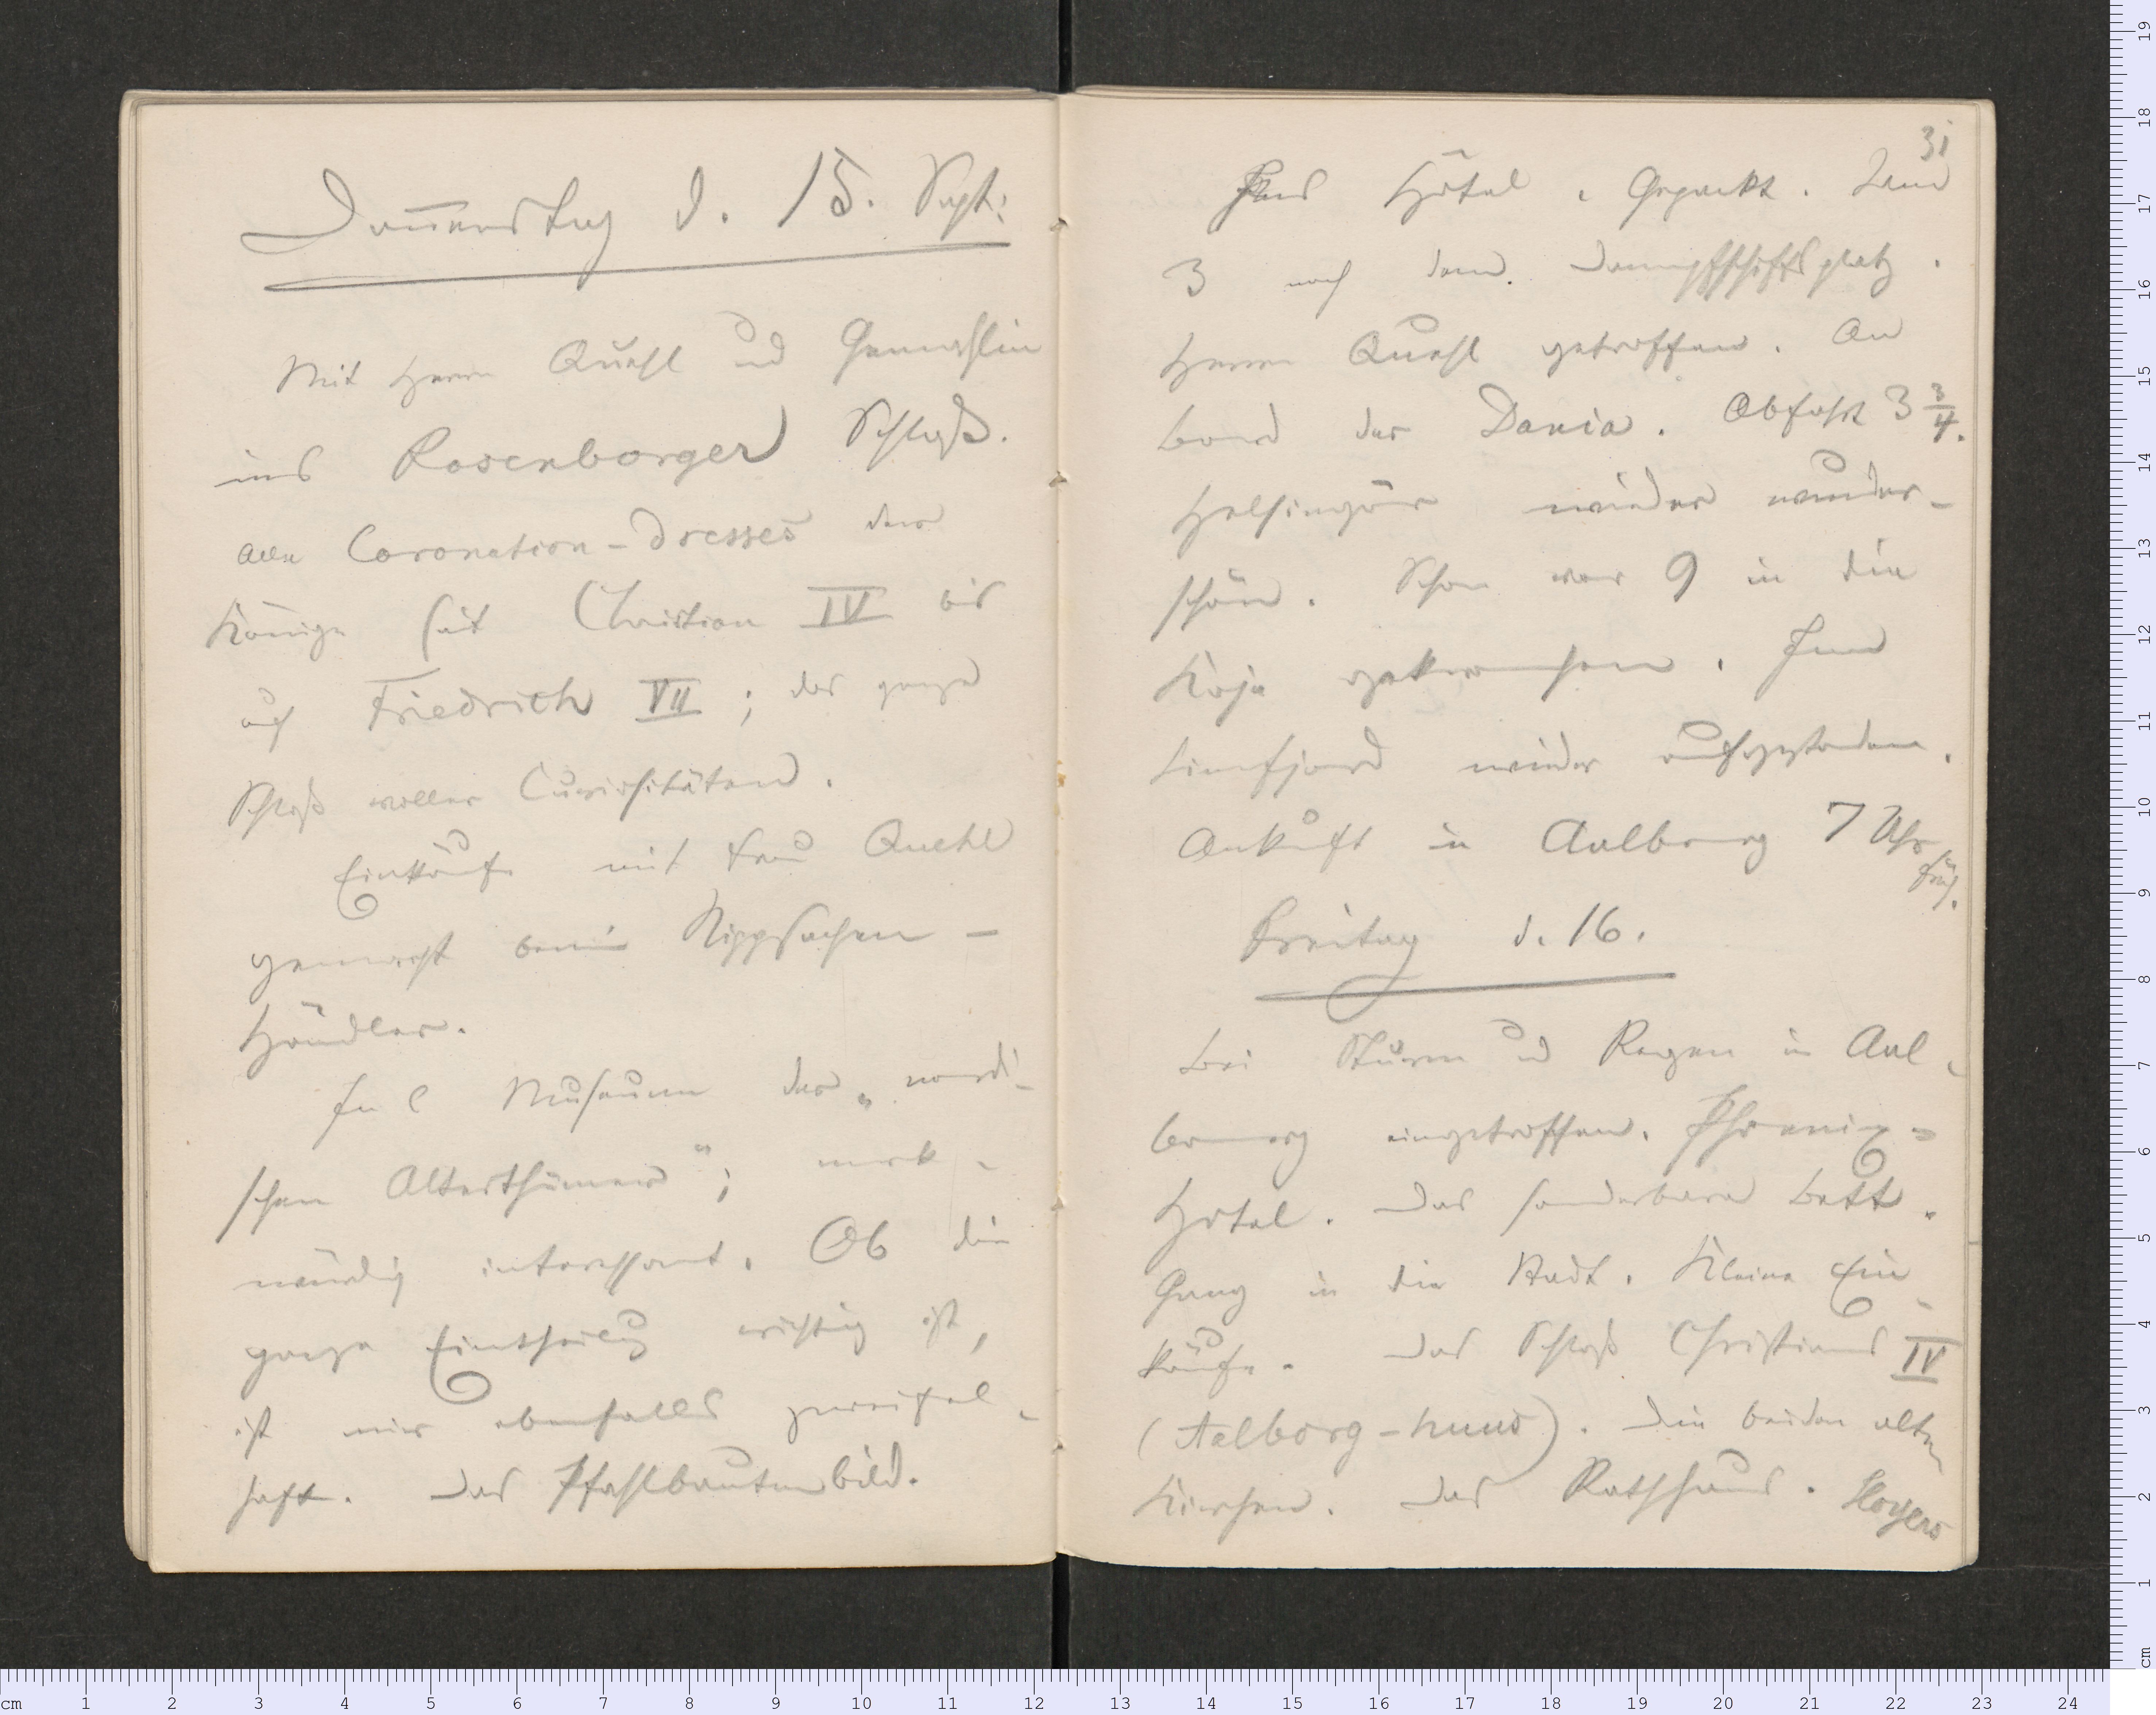 Donnerstag d. 15. Sept:
Mit Herrn Quehl und Gemahlin
ins Rosenborger Schloß.
alle Coronation-Dresses der
Könige seit Christian IV bis
auf Friedrich VII; das ganze
Schloß voller Curiositäten.
Einkäufe mit Frau Quehl
gemacht beim Nippsachen-
Händler.
Ins Museum der „nordi-
schen Alterthümer"; merk-
würdig interessant. Ob die
ganze Eintheilung richtig ist,
ist mir ebenfalls zweifel-
haft. Das Pfahlbautenbild.
31
Ins Hôtel. Gepackt. Um
3 nach dem Dampfschiffsplatz.
Herrn Quehl getroffen. An
Bord der Dania. Abfahrt 3 3/4.
Helsingör wieder wunder-
schön. Schon vor 9 in die
Koje gekrochen. Im
Limfjord wieder aufgestanden.
Ankunft in Aalborg 7 Uhr
früh.
Freitag d. 16.
Bei Sturm und Regen in Aal-
borg eingetroffen. Phoenix-
Hotel. Das sonderbare Bett.
Gang in die Stadt. Kleine Ein-
käufe. Das Schloß Christians IV
(Aalborg-huus). Die beiden alten
Kirchen. Das Rathhaus.